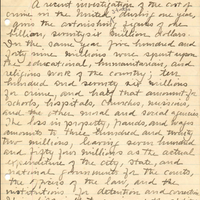 A recent investigation of the cost of
crime in the United States during one year
gives the astonishing figures of one
billion, seventy six million dollars.
In the same year, five hundred and
forty nine millions were spent upon
the educational, humanitarian, and
religious work of the country; ten
hundred and seventy six millions
for crime, and half that amount for
schools, hospitals, churches, missions
and the other moral and social agencies
The loss in property, frauds, and wages
amounts to three hundred and twenty
two millions, leaving seven hundred
and fifty four millions as the actual
expenditure of the city, state, and
national governments for the courts,
the officers of the law, and the
institutions of detention and correction